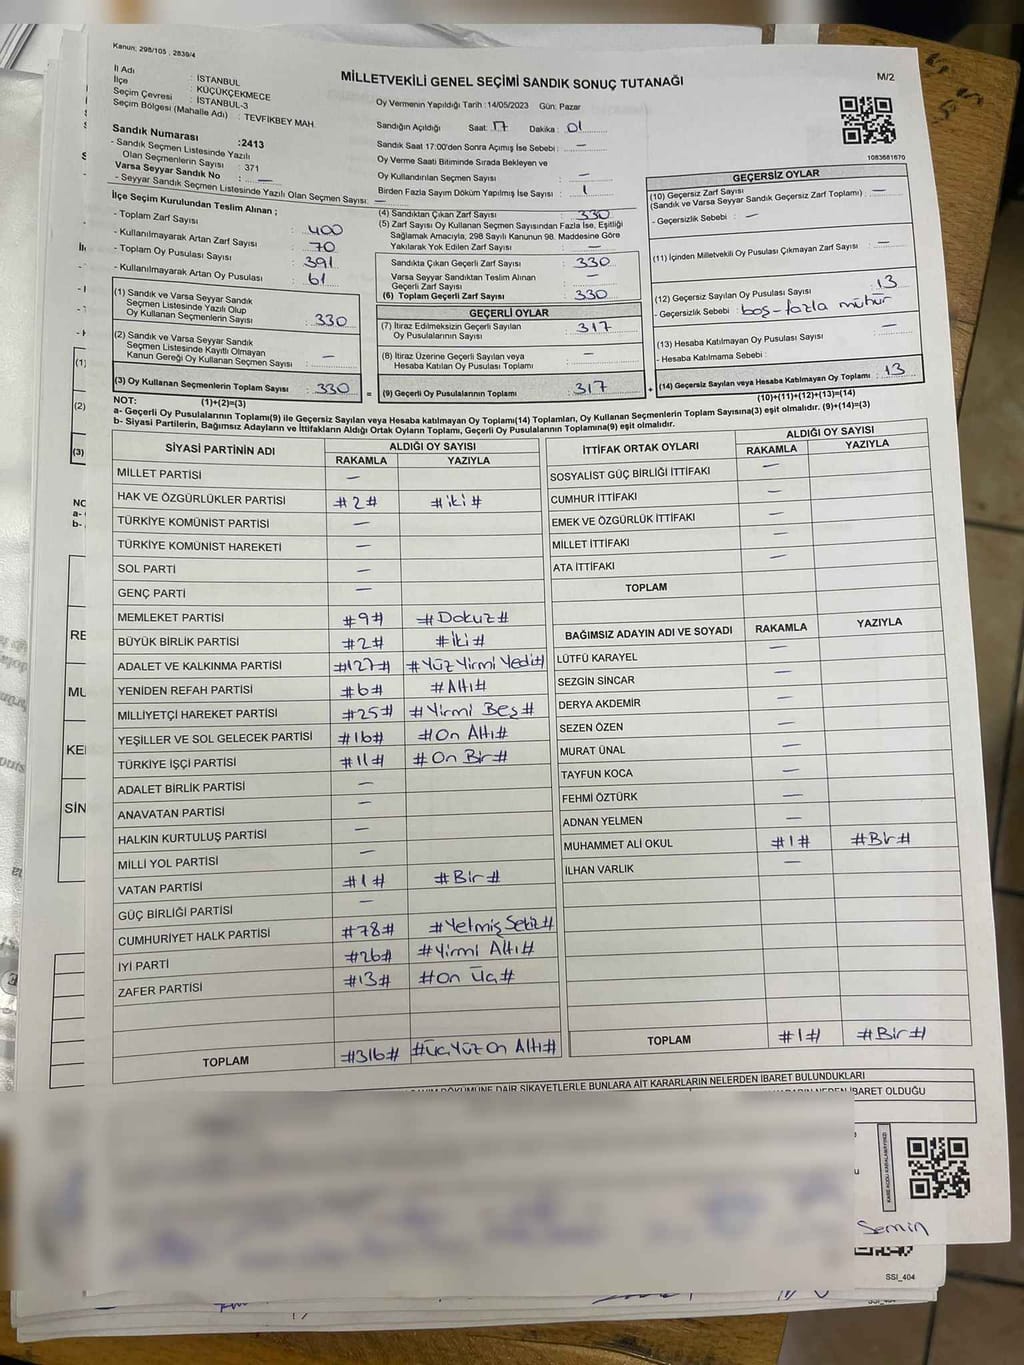 Kanun; 298/105 , 2839/4
MİLLETVEKİLİ GENEL SEÇİMİ SANDIK SONUÇ TUTANAĞI
M/2
İl Adı : İSTANBUL
İlçe : KÜÇÜKÇEKMECE
Seçim Çevresi : İSTANBUL-3
Seçim Bölgesi (Mahalle Adı) : TEVFİKBEY MAH.
Sandık Numarası :2413
- Sandık Seçmen Listesinde Yazılı
Olan Seçmenlerin Sayısı : 371
Varsa Seyyar Sandık No : —
- Seyyar Sandık Seçmen Listesinde Yazılı Olan Seçmen Sayısı: —
İlçe Seçim Kurulundan Teslim Alınan ;
- Toplam Zarf Sayısı : 400
- Kullanılmayarak Artan Zarf Sayısı : 70
- Toplam Oy Pusulası Sayısı : 391
- Kullanılmayarak Artan Oy Pusulası : 61
(1) Sandık ve Varsa Seyyar Sandık
Seçmen Listesinde Yazılı Olup
Oy Kullanan Seçmenlerin Sayısı : 330
(2) Sandık ve Varsa Seyyar Sandık
Seçmen Listesinde Kayıtlı Olmayan
Kanun Gereği Oy Kullanan Seçmen Sayısı : —
(3) Oy Kullanan Seçmenlerin Toplam Sayısı : 330 =
(1)+(2)=(3)
Oy Vermenin Yapıldığı Tarih :14/05/2023 Gün: Pazar
Sandığın Açıldığı Saat: 17 Dakika : 01
Sandık Saat 17:00'den Sonra Açımış İse Sebebi : —
Oy Verme Saati Bitiminde Sırada Bekleyen ve
Oy Kullandırılan Seçmen Sayısı : —
Birden Fazla Sayım Döküm Yapılmış İse Sayısı : 1
(4) Sandıktan Çıkan Zarf Sayısı : 330
(5) Zarf Sayısı Oy Kullanan Seçmen Sayısından Fazla İse, Eşitliği
Sağlamak Amacıyla, 298 Sayılı Kanunun 98. Maddesine Göre
Yakılarak Yok Edilen Zarf Sayısı : —
Sandıkta Çıkan Geçerli Zarf Sayısı : 330
Varsa Seyyar Sandıktan Teslim Alınan
Geçerli Zarf Sayısı : —
(6) Toplam Geçerli Zarf Sayısı : 330
GEÇERLİ OYLAR
(7) İtiraz Edilmeksizin Geçerli Sayılan
Oy Pusulalarının Sayısı : 317
(8) İtiraz Üzerine Geçerli Sayılan veya
Hesaba Katılan Oy Pusulası Toplamı : —
(9) Geçerli Oy Pusulalarının Toplamı : 317 +
1083681670
GEÇERSİZ OYLAR
(10) Geçersiz Zarf Sayısı : —
(Sandık ve Varsa Seyyar Sandık Geçersiz Zarf Toplamı)
- Geçersizlik Sebebi : —
(11) İçinden Milletvekili Oy Pusulası Çıkmayan Zarf Sayısı : —
(12) Geçersiz Sayılan Oy Pusulası Sayısı : 13
- Geçersizlik Sebebi : boş-fazla mühür
(13) Hesaba Katılmayan Oy Pusulası Sayısı : —
- Hesaba Katılmama Sebebi :
(14) Geçersiz Sayılan veya Hesaba Katılmayan Oy Toplamı : 13
(10)+(11)+(12)+(13)=(14)
NOT:
a- Geçerli Oy Pusulalarının Toplamı(9) ile Geçersiz Sayılan veya Hesaba katılmayan Oy Toplamı(14) Toplamları, Oy Kullanan Seçmenlerin Toplam Sayısına(3) eşit olmalıdır. (9)+(14)=(3)
b- Siyasi Partilerin, Bağımsız Adayların ve İttifakların Aldığı Ortak Oyların Toplamı, Geçerli Oy Pusulalarının Toplamına(9) eşit olmalıdır.
SİYASİ PARTİNİN ADI ALDIĞI OY SAYISI
RAKAMLA YAZIYLA
MİLLET PARTİSİ —
HAK VE ÖZGÜRLÜKLER PARTİSİ #2# #iki#
TÜRKİYE KOMÜNİST PARTİSİ —
TÜRKİYE KOMÜNİST HAREKETİ —
SOL PARTİ —
GENÇ PARTİ —
MEMLEKET PARTİSİ #9# #Dokuz#
BÜYÜK BİRLİK PARTİSİ #2# #iki#
ADALET VE KALKINMA PARTİSİ #127# #Yüz Yirmi Yedi#
YENİDEN REFAH PARTİSİ #6# #Altı#
MİLLİYETÇİ HAREKET PARTİSİ #25# #Yirmi Beş#
YEŞİLLER VE SOL GELECEK PARTİSİ #16# #On Altı#
TÜRKİYE İŞÇİ PARTİSİ #11# #On Bir#
ADALET BİRLİK PARTİSİ —
ANAVATAN PARTİSİ —
HALKIN KURTULUŞ PARTİSİ —
MİLLİ YOL PARTİSİ —
VATAN PARTİSİ #1# #Bir#
GÜÇ BİRLİĞİ PARTİSİ —
CUMHURİYET HALK PARTİSİ #78# #Yetmiş Sekiz#
İYİ PARTİ #26# #Yirmi Altı#
ZAFER PARTİSİ #13# #On Üç#
TOPLAM #316# #Üç Yüz On Altı#
İTTİFAK ORTAK OYLARI ALDIĞI OY SAYISI
RAKAMLA YAZIYLA
SOSYALİST GÜÇ BİRLİĞİ İTTİFAKI —
CUMHUR İTTİFAKI —
EMEK VE ÖZGÜRLÜK İTTİFAKI —
MİLLET İTTİFAKI —
ATA İTTİFAKI —
TOPLAM
BAĞIMSIZ ADAYIN ADI VE SOYADI RAKAMLA YAZIYLA
LÜTFÜ KARAYEL —
SEZGİN SİNCAR —
DERYA AKDEMİR —
SEZEN ÖZEN —
MURAT ÜNAL —
TAYFUN KOCA —
FEHMİ ÖZTÜRK —
ADNAN YELMEN —
MUHAMMET ALİ OKUL #1# #Bir#
İLHAN VARLIK —
TOPLAM #1# #Bir#
DÖKÜMÜNE DAİR ŞİKAYETLERLE BUNLARA AİT KARARLARIN NELERDEN İBARET BULUNDUKLARI
İBARET OLDUĞU
Semin
SSI_404